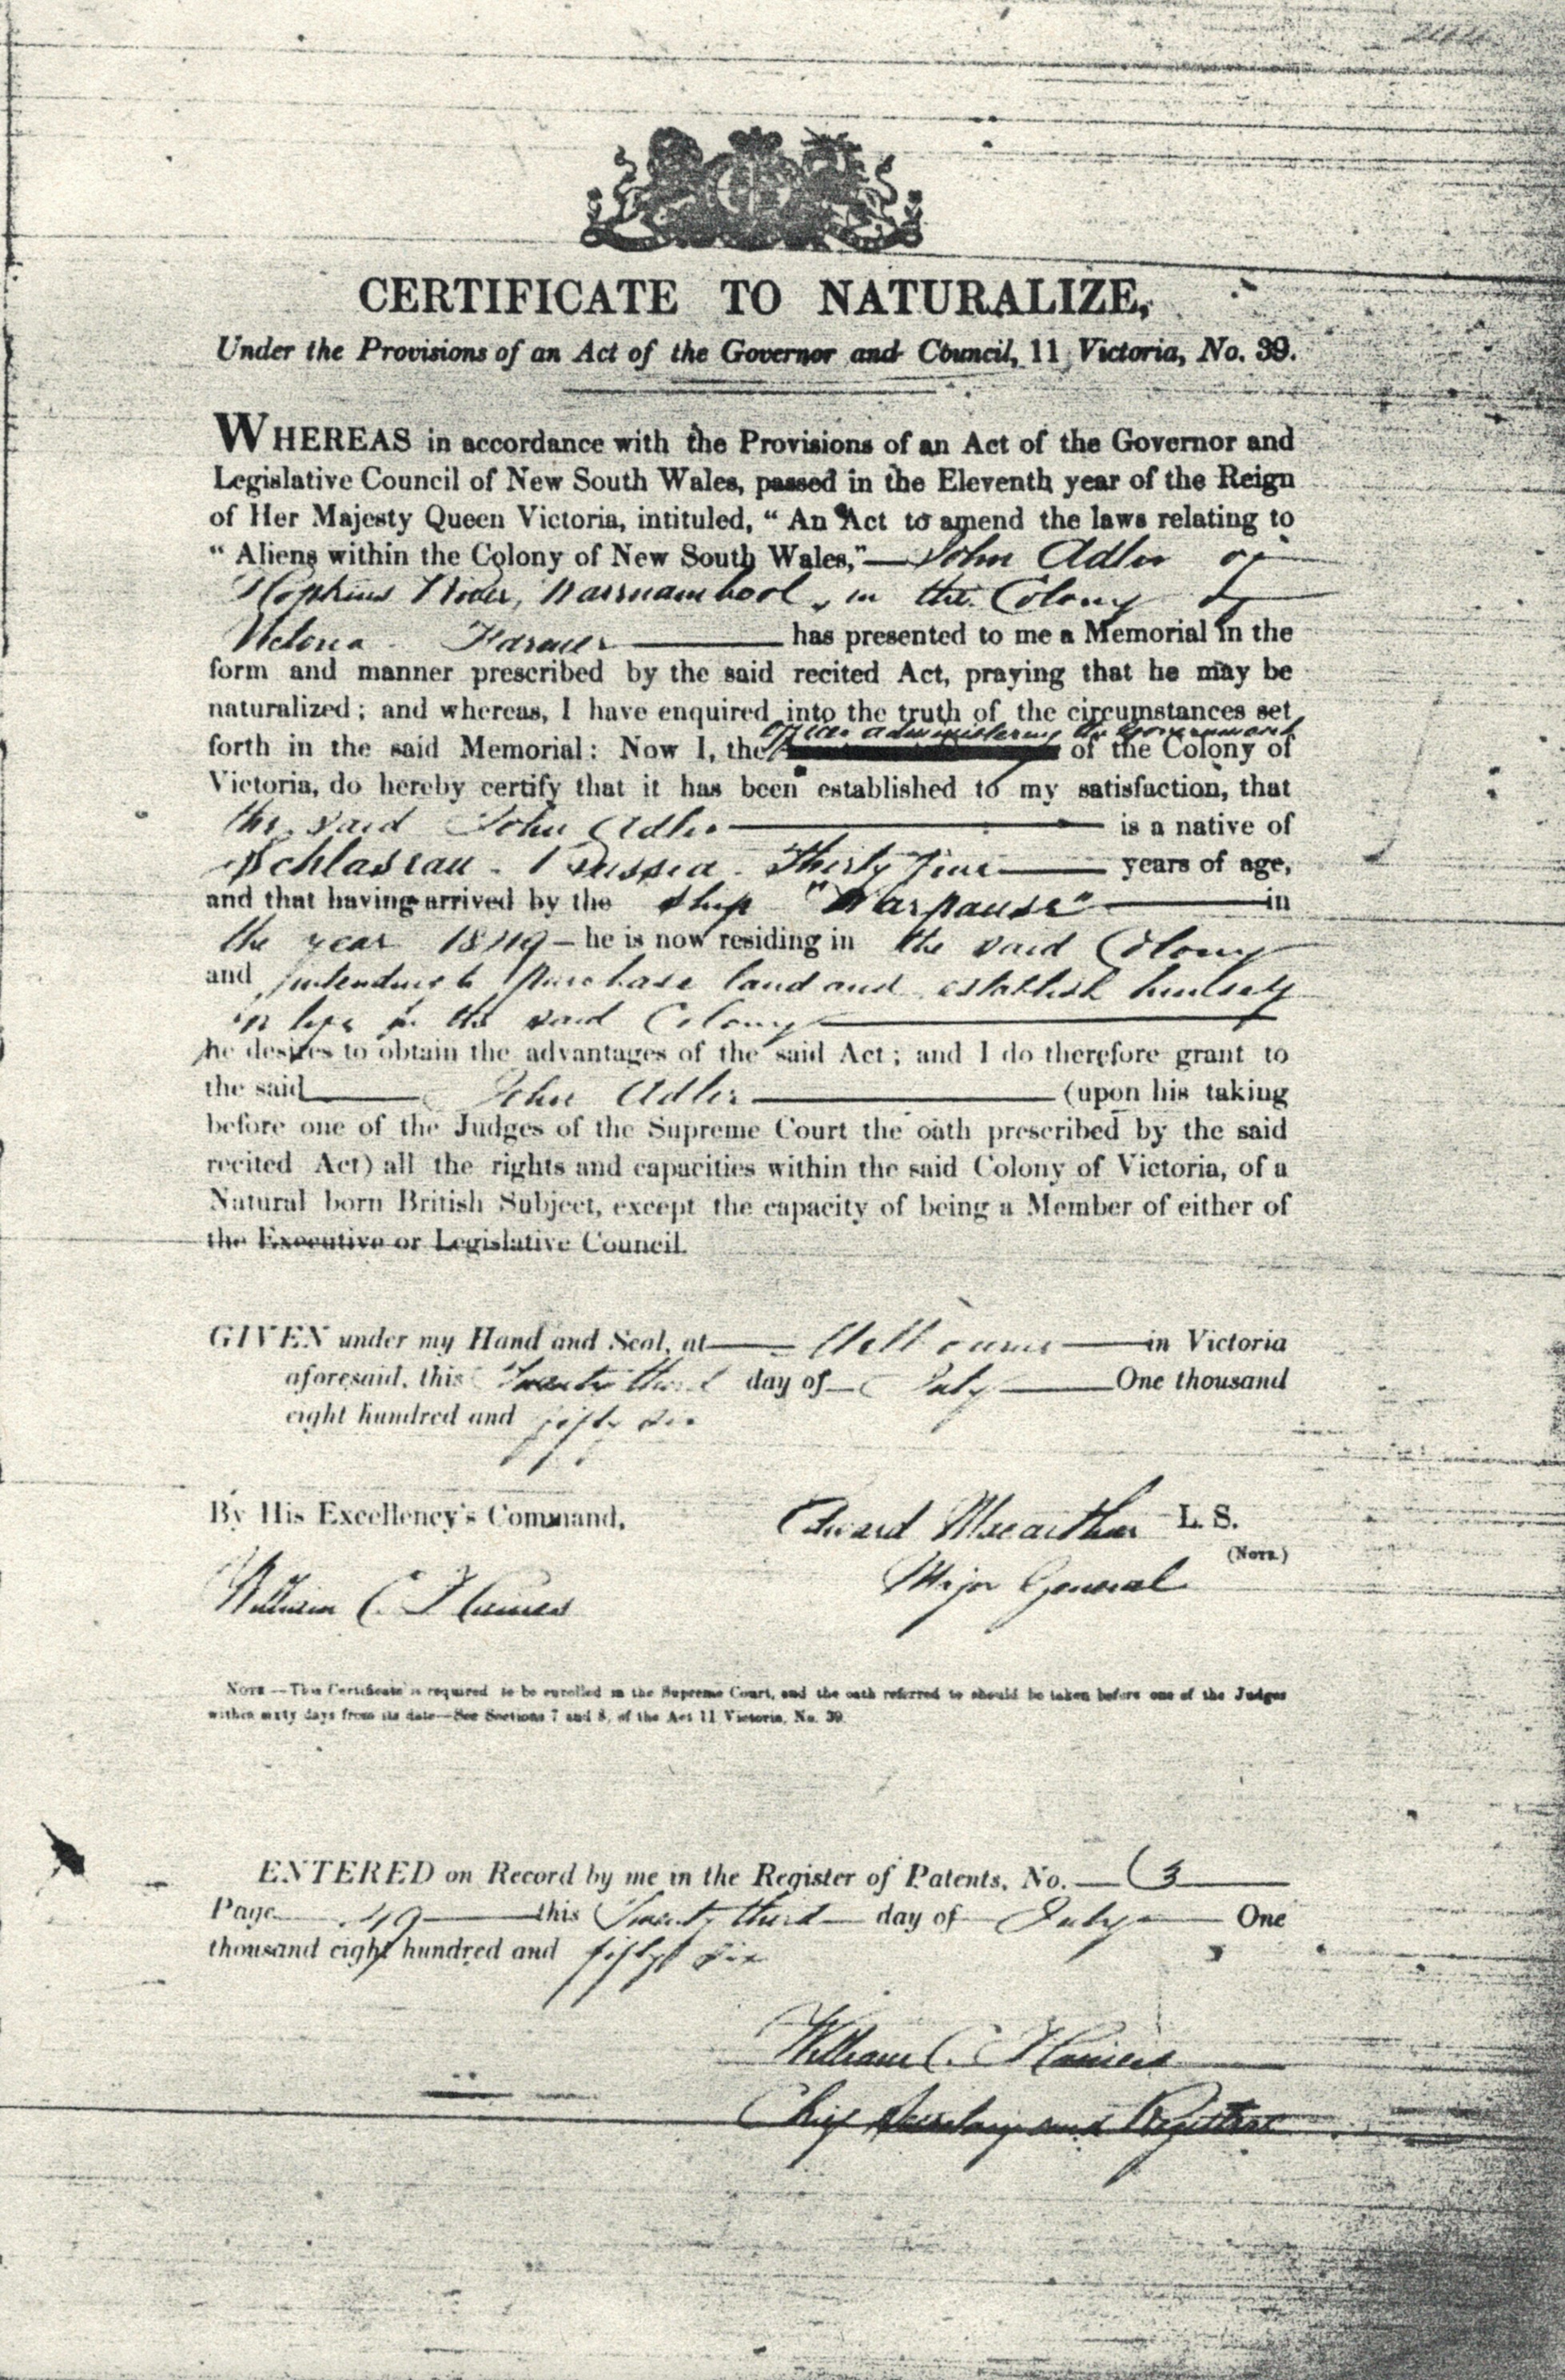 CERTIFICATE TO NATURALIZE,
Under the Provisions of an Act of the Governor and Council, 11 Victoria, No. 39.
WHEREAS in accordance with the Provisions of an Act of the Governor and
Legislative Council of New South Wales, passed in the Eleventh year of the Reign
of Her Majesty Queen Victoria, intituled, “ An Act to amend the laws relating to
“ Aliens within the Colony of New South Wales,”—John Adler of
Hopkins River, Warrnambool, in the Colony of
Victoria Farmer has presented to me a Memorial in the
form and manner prescribed by the said recited Act, praying that he may be
naturalized ; and whereas, I have enquired into the truth of the circumstances set
officer administering the Government
forth in the said Memorial : Now I, the of the Colony of
Victoria, do hereby certify that it has been established to my satisfaction, that
the said John Adler is a native of
Prussia Thirty five years of age,
and that having arrived by the ship in
the year 1849 — he is now residing in the said Colony
and intending to purchase land and establish himself
in life in the said Colony
he desires to obtain the advantages of the said Act ; and I do therefore grant to
the said John Adler (upon his taking
before one of the Judges of the Supreme Court the oath prescribed by the said
recited Act) all the rights and capacities within the said Colony of Victoria, of a
Natural born British Subject, except the capacity of being a Member of either of
the Executive or Legislative Council.
GIVEN under my Hand and Seal, at Melbourne in Victoria
aforesaid, this Twenty third day of July One thousand
eight hundred and fifty six
By His Excellency's Command,
Edward Macarthur L. S.
(NOTE.)
Major General
William C. Haines
NOTE —This Certificate is required to be enrolled in the Supreme Court, and the oath referred to should be taken before one of the Judges
within sixty days from its date—See Sections 7 and 8, of the Act 11 Victoria, No. 39.
ENTERED on Record by me in the Register of Patents, No. 3
Page 49 this Twenty third day of July One
thousand eight hundred and fifty six
William C. Haines
Chief Secretary and Registrar